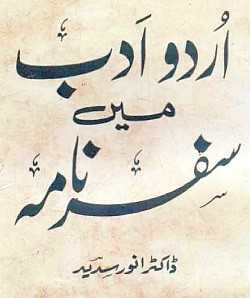 اُردو اَدب
میں
سفر نامہ
ڈاکٹر انور سدید